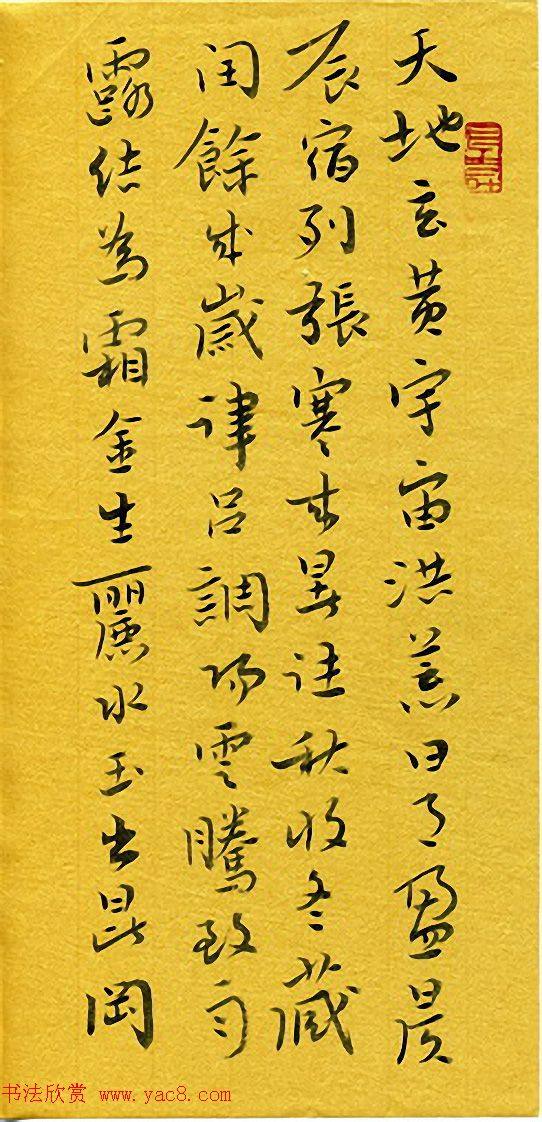 天地玄黄宇宙洪荒日月盈昃
辰宿列張寒来暑往秋收冬藏
閏餘成歲律吕調陽雲騰致雨
露結為霜金生麗水玉出昆岡
书法欣赏 www.yac8.com